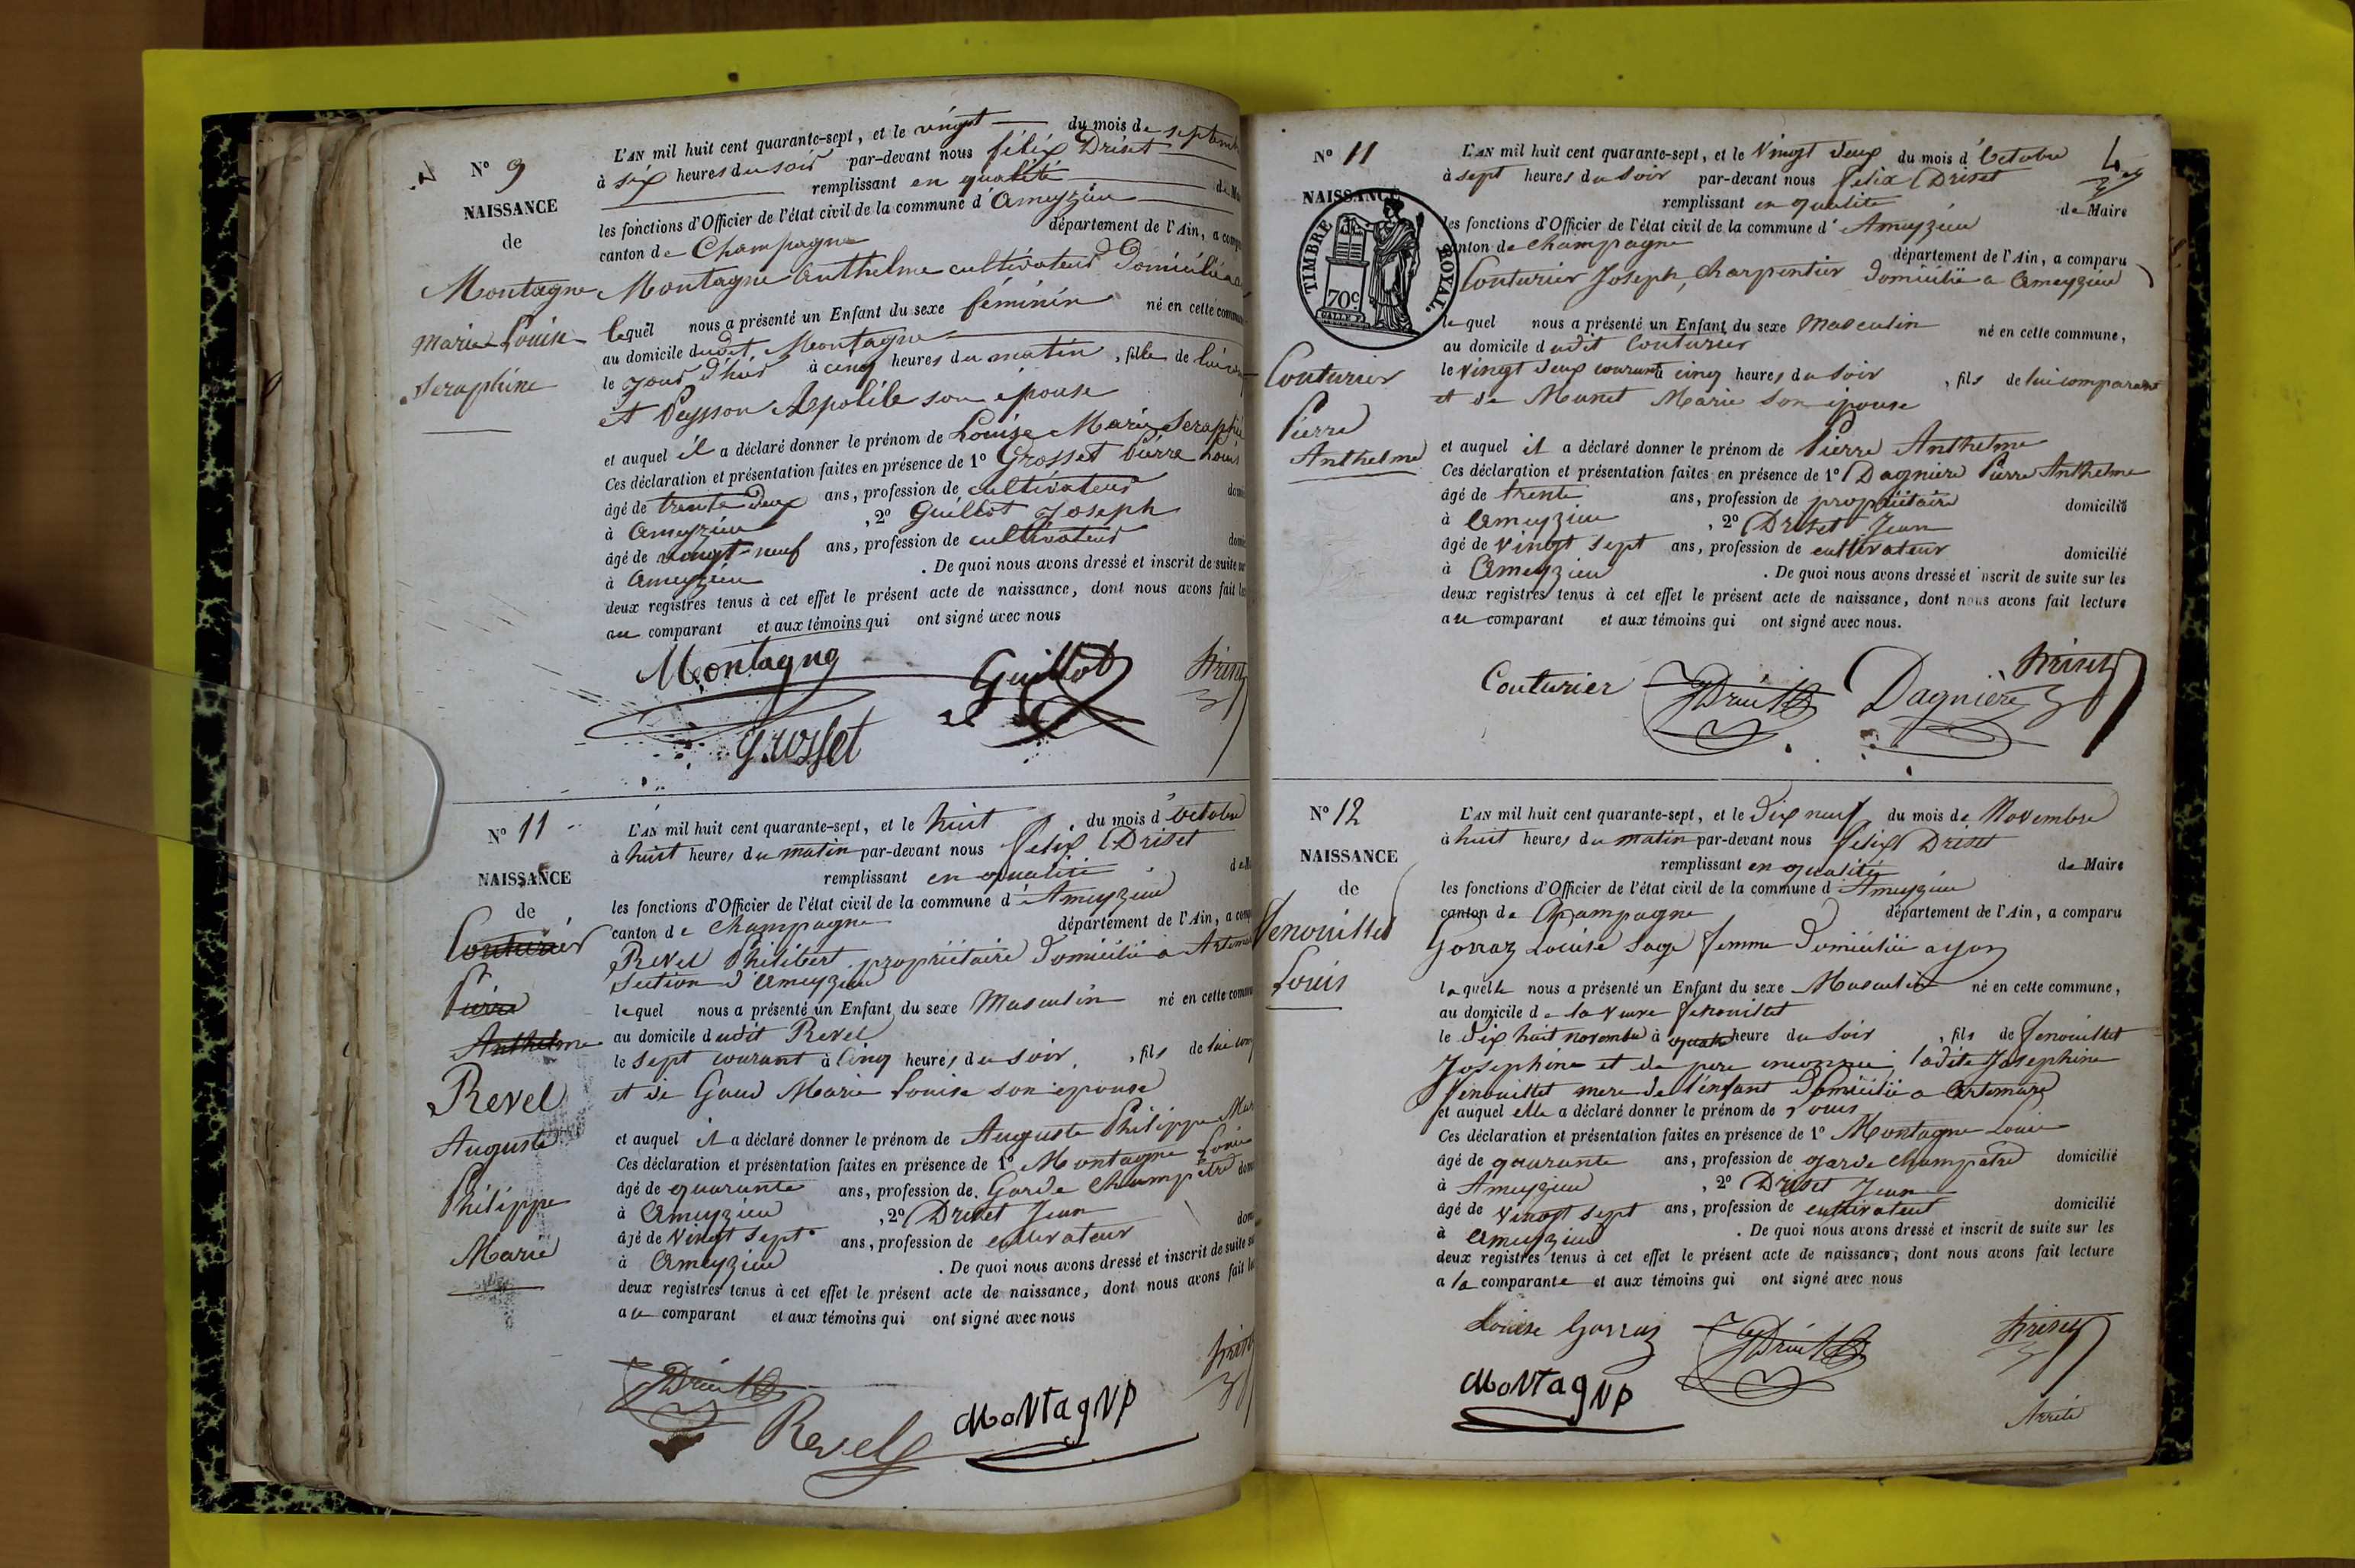 N° 9
NAISSANCE
de
Montagne
Marie Louise
Seraphine
L'AN mil huit cent quarante-sept, et le vingt du mois de septemb
à six heures du soir par-devant nous félix Driset
remplissant en qualité de Ma
les fonctions d'Officier de l'état civil de la commune d'Ameyzieu
canton de Champagne département de l'Ain, a comp
Montagne Anthelme cultivateur Domicilié a
lequel nous a présenté un Enfant du sexe féminin né en cette commun
au domicile dudit Montagne
le jour d'hui à cinq heures du matin, fille de lui
et Peysson son épouse
et auquel il a déclaré donner le prénom de Louise Marie Seraphi
Ces déclaration et présentation faites en présence de 1° Grosset Pierre Louis
âgé de trente deux ans, profession de cultivateur dom
à Ameyzieu, 2° Guillot Joseph
âgé de vingt-neuf ans, profession de cultivateur domi
à Ameyzieu. De quoi nous avons dressé et inscrit de suite su
deux registres tenus à cet effet le présent acte de naissance, dont nous avons fait lec
au comparant et aux témoins qui ont signé avec nous
Montagne Guillot Driset
Grosset
N° 11
NAISSANCE
de
Couturier
Pierre
Anthelme
Revel
Auguste
Philippe
Marie
L'AN mil huit cent quarante-sept, et le huit du mois d'Octobre
à huit heures du matin par-devant nous felix Driset
remplissant en qualité de M
les fonctions d'Officier de l'état civil de la commune d'Ameyzieu
canton de Champagne département de l'Ain, a comp
Revel Philibert propriétaire Domicilié a Artema
Section d'Ameyzieu
lequel nous a présenté un Enfant du sexe Masculin né en cette commu
au domicile dudit Revel
le sept courant à Cinq heures du soir, fils de lui com
et de Marie Louise son epouse
et auquel il a déclaré donner le prénom de Auguste Philippe Mar
Ces déclaration et présentation faites en présence de 1° Montagne Louis
âgé de quarante ans, profession de Garde Champêtre dom
à Ameyzieu, 2° Driset Jean
âgé de Vingt sept ans, profession de cultivateur dom
à Ameyzieu. De quoi nous avons dressé et inscrit de suite su
deux registres tenus à cet effet le présent acte de naissance, dont nous avons fait le
au comparant et aux témoins qui ont signé avec nous
Driset
JDriset Revel MoNTagNe
4
N° 11
NAISSANCE
TIMBRE ROYAL.
70c
Couturier
Pierre
Anthelme
L'AN mil huit cent quarante-sept, et le Vingt deux du mois d'Octobre
à sept heures du soir par-devant nous felix Driset
remplissant en qualité de Maire
les fonctions d'Officier de l'état civil de la commune d'Ameyzieu
canton de Champagne département de l'Ain, a comparu
Couturier Joseph, Charpentier Domicilié a Ameyzieu
lequel nous a présenté un Enfant du sexe Masculin né en cette commune,
au domicile dudit Couturier
le Vingt deux courant à cinq heures du soir, fils de lui comparant
et de Munet Marie son epouse
et auquel il a déclaré donner le prénom de Pierre Anthelme
Ces déclaration et présentation faites en présence de 1° Dagniere Pierre Anthelme
âgé de trente ans, profession de propriétaire domicilié
à Ameyzieu, 2° Driset Jean
âgé de vingt sept ans, profession de cultivateur domicilié
à Ameyzieu. De quoi nous avons dressé et inscrit de suite sur les
deux registres tenus à cet effet le présent acte de naissance, dont nous avons fait lecture
au comparant et aux témoins qui ont signé avec nous.
Couturier JDriset Dagnière Driset
N° 12
NAISSANCE
de
Fenouillet
Louis
L'AN mil huit cent quarante-sept, et le Dix neuf du mois de Novembre
à huit heures du matin par-devant nous felix Driset
remplissant en qualité de Maire
les fonctions d'Officier de l'état civil de la commune d'Ameyzieu
canton de Champagne département de l'Ain, a comparu
Gorraz Louise sage femme Domiciliée a yon
laquelle nous a présenté un Enfant du sexe Masculin né en cette commune,
au domicile de la Veuve fenouillet
le Dix huit novembre à quatre heure du soir, fils de fenouillet
Josephine et de pere inconnu, ladite Josephine
fenouillet mere de l'enfant Domiciliée a Artemare
et auquel elle a déclaré donner le prénom de Louis
Ces déclaration et présentation faites en présence de 1° Montagne Louis
âgé de quarante ans, profession de garde champêtre domicilié
à Ameyzieu, 2° Driset Jean
âgé de vingt sept ans, profession de cultivateur domicilié
à Ameyzieu. De quoi nous avons dressé et inscrit de suite sur les
deux registres tenus à cet effet le présent acte de naissance, dont nous avons fait lecture
a la comparante et aux témoins qui ont signé avec nous
Louise Gorraz JDriset Driset
MoNTagNe
Arrêté